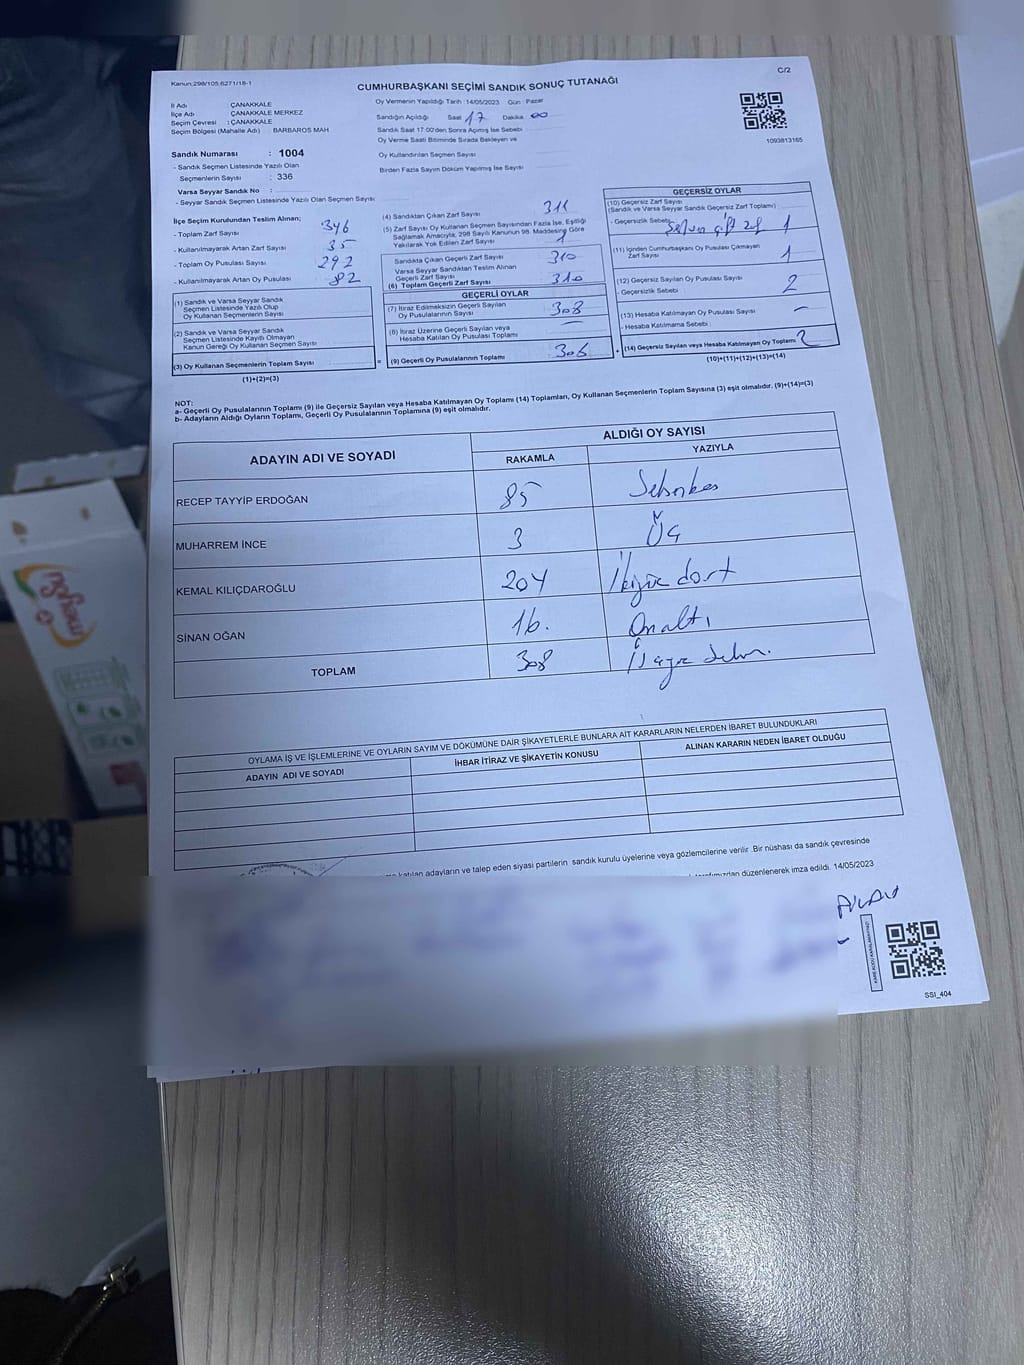 Kanun:298/105:6271/18-1
C/2
CUMHURBAŞKANI SEÇİMİ SANDIK SONUÇ TUTANAĞI
İl Adı : ÇANAKKALE
İlçe Adı : ÇANAKKALE MERKEZ
Seçim Çevresi : ÇANAKKALE
Seçim Bölgesi (Mahalle Adı) : BARBAROS MAH
Sandık Numarası : 1004
- Sandık Seçmen Listesinde Yazılı Olan
Seçmenlerin Sayısı : 336
Varsa Seyyar Sandık No :
- Seyyar Sandık Seçmen Listesinde Yazılı Olan Seçmen Sayısı
Oy Vermenin Yapıldığı Tarih :14/05/2023 Gün : Pazar
Sandığın Açıldığı Saat 17 Dakika 00
Sandık Saat 17:00'den Sonra Açılmış İse Sebebi
Oy Verme Saati Bitiminde Sırada Bekleyen ve
Oy Kullandırılan Seçmen Sayısı
Birden Fazla Sayım Döküm Yapılmış İse Sayısı
1093813165
İlçe Seçim Kurulundan Teslim Alınan;
- Toplam Zarf Sayısı 346
- Kullanılmayarak Artan Zarf Sayısı 35
- Toplam Oy Pusulası Sayısı 292
- Kullanılmayarak Artan Oy Pusulası 82
(1) Sandık ve Varsa Seyyar Sandık
Seçmen Listesinde Yazılı Olup
Oy Kullanan Seçmenlerin Sayısı
(2) Sandık ve Varsa Seyyar Sandık
Seçmen Listesinde Kayıtlı Olmayan
Kanun Gereği Oy Kullanan Seçmen Sayısı
(3) Oy Kullanan Seçmenlerin Toplam Sayısı
(1)+(2)=(3)
(4) Sandıktan Çıkan Zarf Sayısı 311
(5) Zarf Sayısı Oy Kullanan Seçmen Sayısından Fazla İse, Eşitliği
Sağlamak Amacıyla, 298 Sayılı Kanunun 98. Maddesine Göre
Yakılarak Yok Edilen Zarf Sayısı 1
Sandıkta Çıkan Geçerli Zarf Sayısı 310
Varsa Seyyar Sandıktan Teslim Alınan
Geçerli Zarf Sayısı
(6) Toplam Geçerli Zarf Sayısı 310
GEÇERLİ OYLAR
(7) İtiraz Edilmeksizin Geçerli Sayılan
Oy Pusulalarının Sayısı 308
(8) İtiraz Üzerine Geçerli Sayılan veya
Hesaba Katılan Oy Pusulası Toplamı —
= (9) Geçerli Oy Pusulalarının Toplamı 306 +
GEÇERSİZ OYLAR
(10) Geçersiz Zarf Sayısı
(Sandık ve Varsa Seyyar Sandık Geçersiz Zarf Toplamı)
- Geçersizlik Sebebi: çift zf 1
(11) İçinden Cumhurbaşkanı Oy Pusulası Çıkmayan
Zarf Sayısı 1
(12) Geçersiz Sayılan Oy Pusulası Sayısı 2
- Geçersizlik Sebebi :
(13) Hesaba Katılmayan Oy Pusulası Sayısı —
- Hesaba Katılmama Sebebi :
(14) Geçersiz Sayılan veya Hesaba Katılmayan Oy Toplamı 2
(10)+(11)+(12)+(13)=(14)
NOT:
a- Geçerli Oy Pusulalarının Toplamı (9) ile Geçersiz Sayılan veya Hesaba Katılmayan Oy Toplamı (14) Toplamları, Oy Kullanan Seçmenlerin Toplam Sayısına (3) eşit olmalıdır. (9)+(14)=(3)
b- Adayların Aldığı Oyların Toplamı, Geçerli Oy Pusulalarının Toplamına (9) eşit olmalıdır.
ADAYIN ADI VE SOYADI
ALDIĞI OY SAYISI
RAKAMLA YAZIYLA
RECEP TAYYİP ERDOĞAN 85 Seksenbeş
MUHARREM İNCE 3 Üç
KEMAL KILIÇDAROĞLU 204 İkiyüz dört
SİNAN OĞAN 16. Onaltı
TOPLAM 308 Üçyüz Sekiz.
OYLAMA İŞ VE İŞLEMLERİNE VE OYLARIN SAYIM VE DÖKÜMÜNE DAİR ŞİKAYETLERLE BUNLARA AİT KARARLARIN NELERDEN İBARET BULUNDUKLARI
ADAYIN ADI VE SOYADI
İHBAR İTİRAZ VE ŞİKAYETİN KONUSU
ALINAN KARARIN NEDEN İBARET OLDUĞU
katılan adayların ve talep eden siyasi partilerin sandık kurulu üyelerine veya gözlemcilerine verilir .Bir nüshası da sandık çevresinde
düzenlenerek imza edildi. 14/05/2023
SSI_404